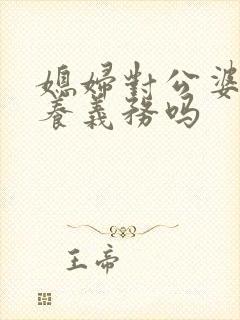 媳婦對公婆
養義務吗
王帝